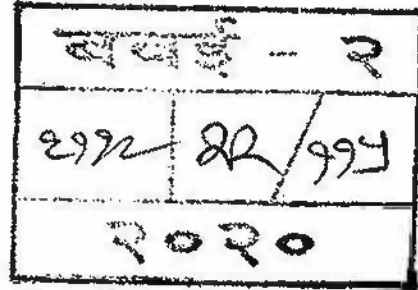 बबई - २
२११२ २२/११५
२०२०